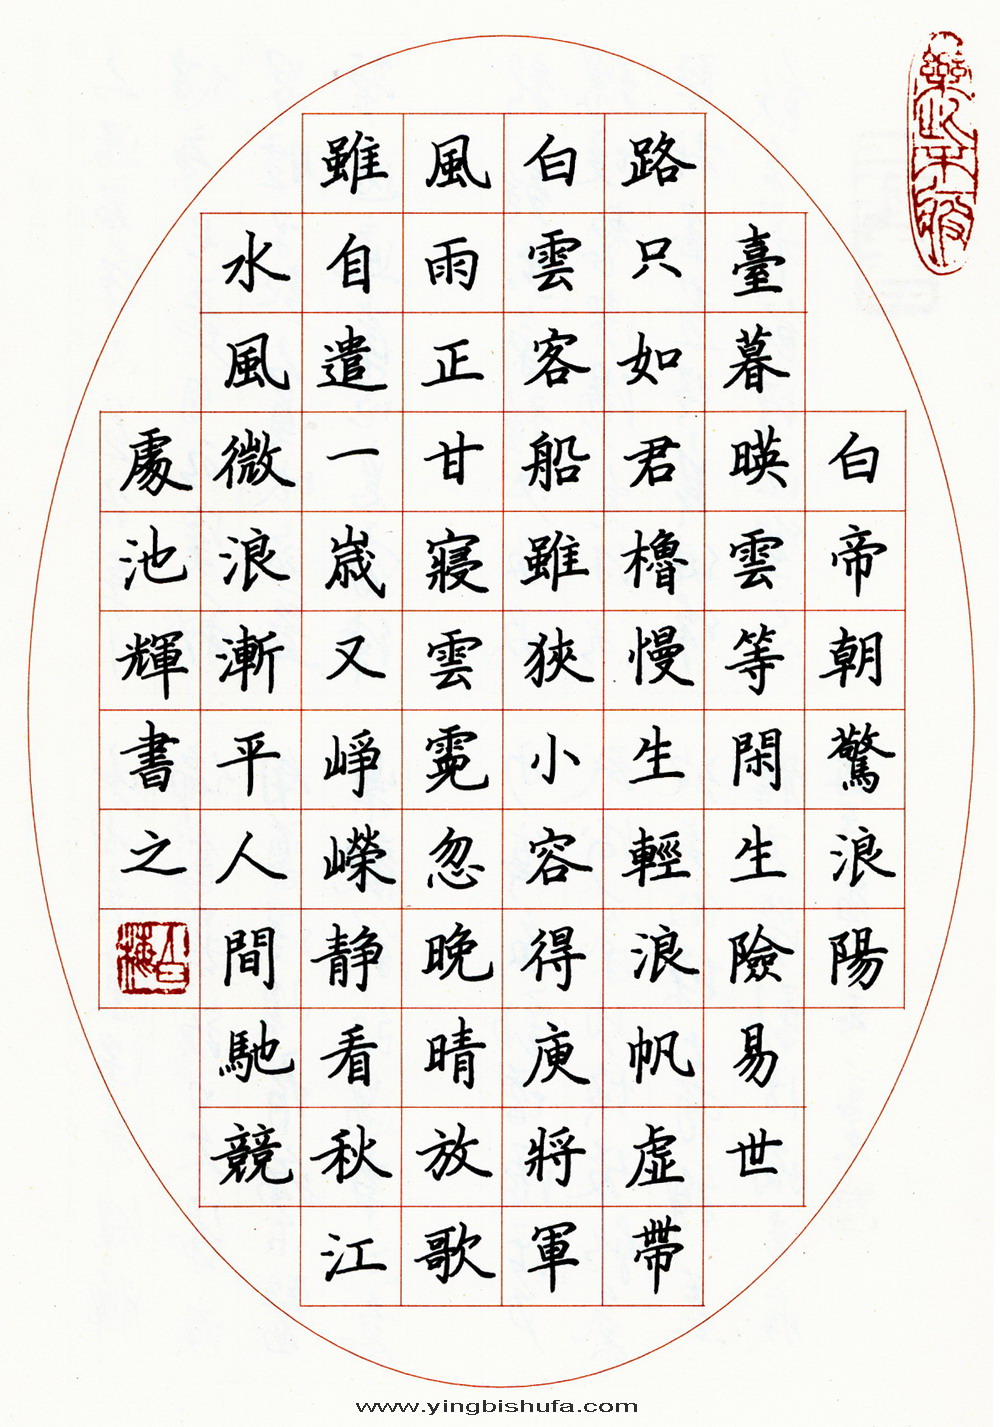 白帝朝驚浪陽
臺暮暎雲等閑生險易世
路只如君櫓慢生輕浪帆虛帶
白雲客船雖狹小容得庾將軍
風雨正甘寢雲霓忽晚晴放歌
雖自遣一歲又崢嶸靜看秋江
水風微浪漸平人間馳競
處池輝書之
www.yingbishufa.com